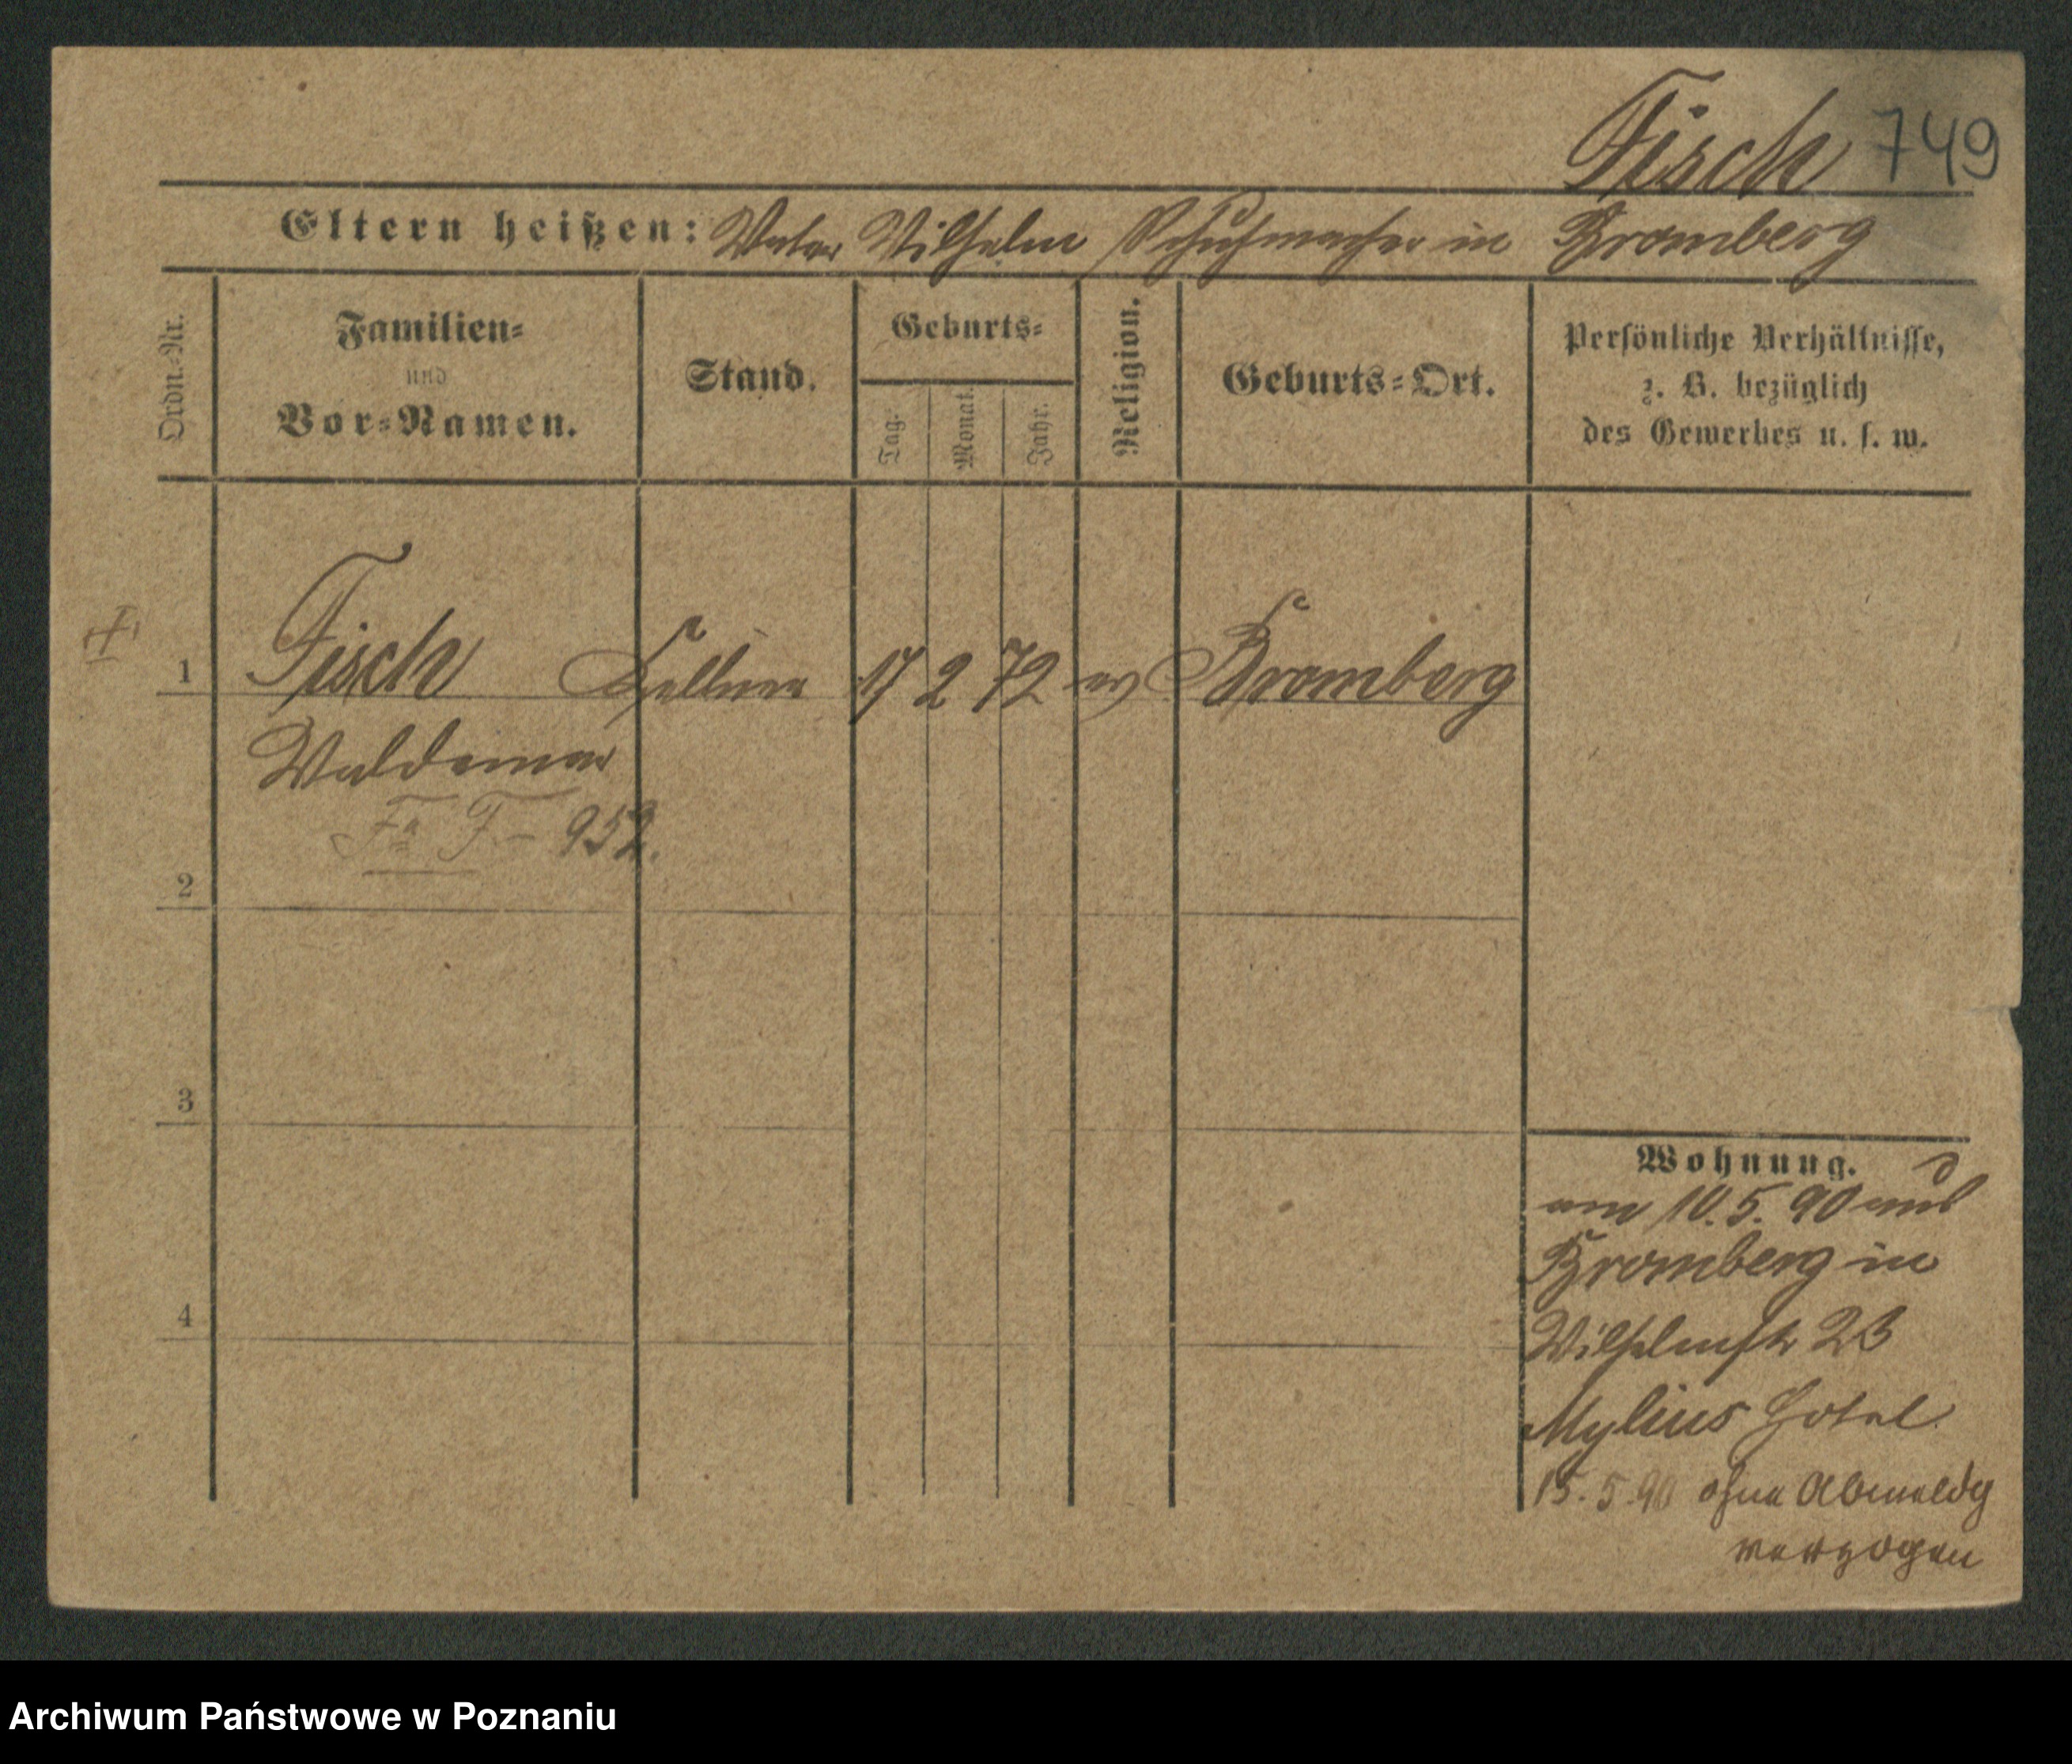 Fisch 749
Eltern heißen: Vater Wilhelm Schuhmacher in Bromberg
Ordn.-Nr.
Familien-
und
Vor-Namen.
Stand.
Geburts-
Tag.
Monat.
Jahr.
Religion.
Geburts-Ort.
Persönliche Verhältnisse,
z. B. bezüglich
des Gewerbes u. s. w.
1 Fisch Kellner 17 2 72 ev Bromberg
Waldemar
F - 952.
2
3
4
Wohnung.
am 10.5.90 aus
Bromberg in
Wilhelmstr 23
Mylius Hotel
15.5.90 ohne Abmeldg
verzogen
Archiwum Państwowe w Poznaniu